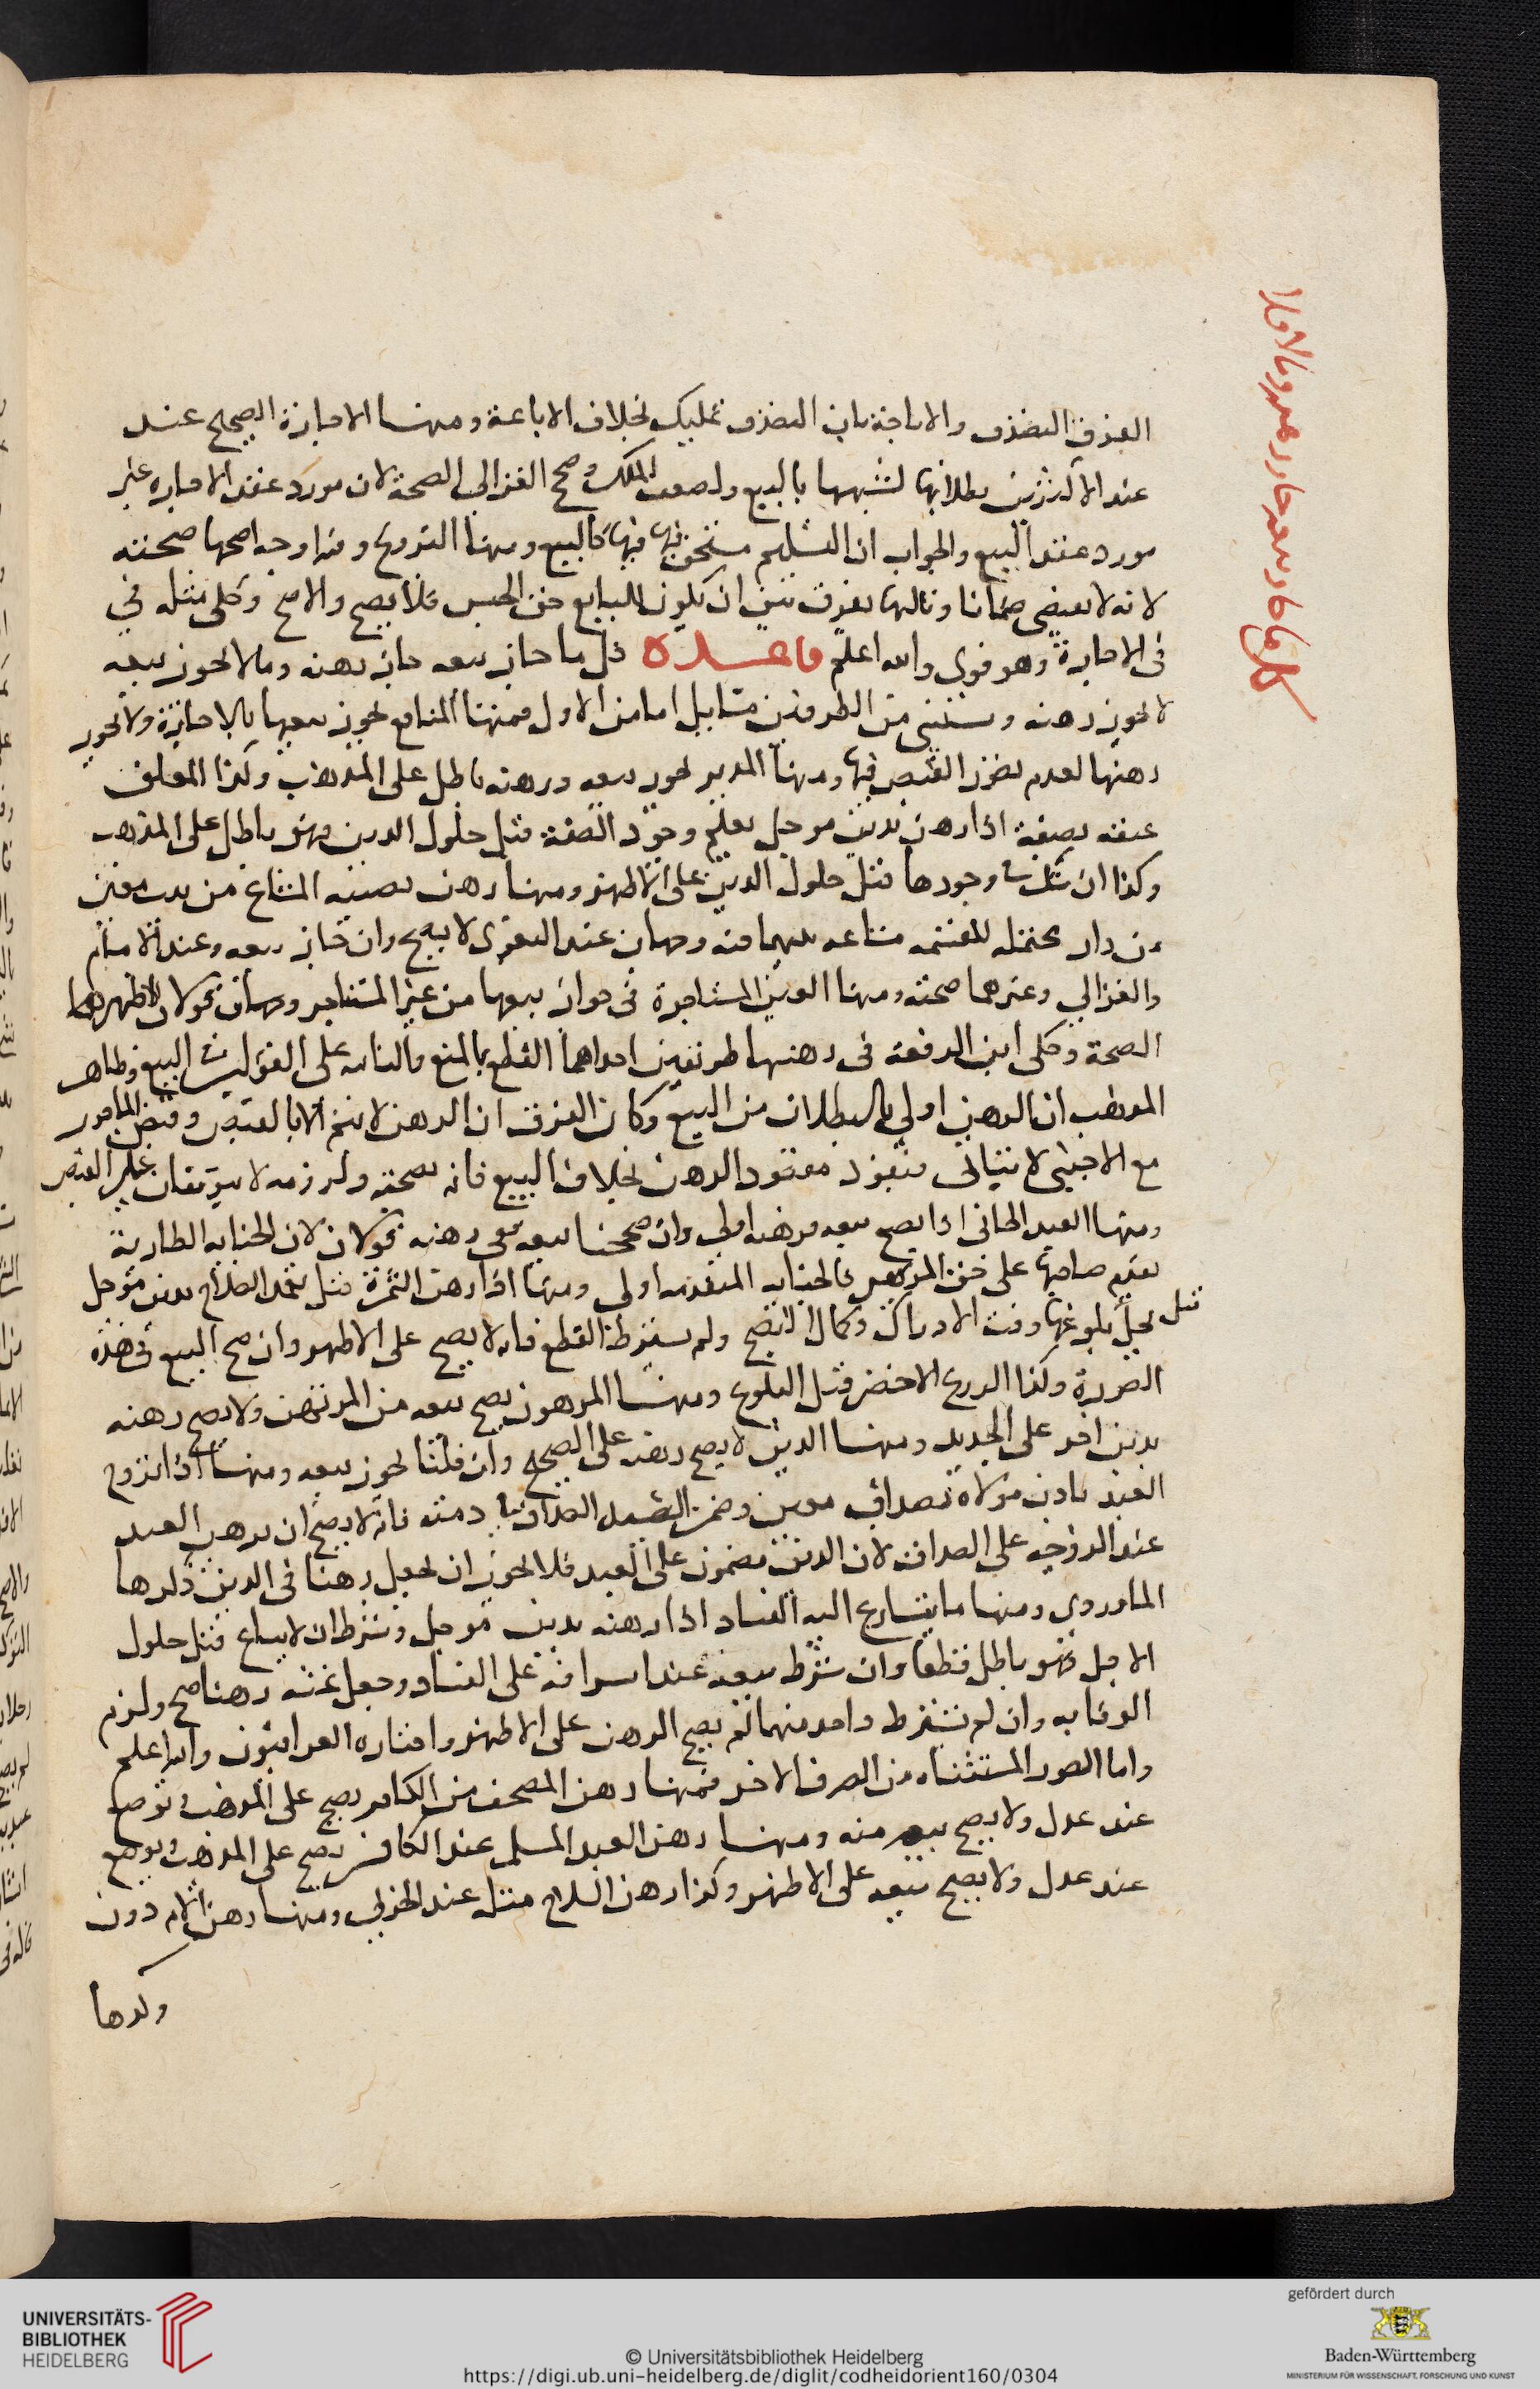 الفرق التصرف والاباحة بان التصرف تمليك بخلاف الاباحة ومنها الاجارة الصحيح عند
عند الاكثرين بطلانها لشبهها بالبيع ولضعف الملك وصح الغزالي الصحة لان مورد عقد الاجاره غير
مورد عقد البيع والجواب ان التسليم مستحق فيها كالبيع ومنها التزويج وفيه اوجه اصحها صحته
لانه لا يقتضي ضمانا وثالثها يفرق بين ان يكون للبايع حق الحبس فلا يصح والا صح وحكى مثله في
في الاجارة وهو قوى والله اعلم قاعدة كل ما جاز بيعه جاز رهنه ومالا يجوز بيعه
لا يجوز رهنه ويستثنى من الطرفين مسايل اما من الاول فمنها المنافع يجوز بيعها بالاجازة ولا يجوز
رهنها لعدم تصور القبض فيها ومنها المدبر يجوز بيعه ورهنه باطل على المذهب وكذا المعلق
عتقه بصفة اذا رهن بدين موجل يعلم وجود الصفة قبل حلول الدين فهو باطل على المذهب
وكذا ان شك في وجودها قبل حلول الدين على الاظهر ومنها رهن نصيبه المشاع من بيت معين
من دار محتمله للقسمه مشاعه بينهما فيه وجهان عند البغوى لا يصح وان جاز بيعه وعند الامام
والغزالي وغيرهما صحته ومنها العين المستاجرة في جواز بيعها من غير المستاجر وجهان قولان اظهرهما
الصحة وحكى ابن الرفعة في رهنها طريقين احداهما القطع بالمنع والثانيه على القولين في البيع وظاهر
المذهب ان الرهن اولى بالبطلان من البيع وكان الفرق ان الرهن لا يتم الا بالقبض وقبض الماجور
مع الاجنبي لا يتاتى فيفوت مقصود الرهن بخلاف البيع فانه صحته ولزومه لا يتوقفان على القبض
ومنها العبد الجاني اذا لم يصح بيعه فرهنه اولى وان صححنا بيعه ففي رهنه قولان لان الجنايه الطارية
يقدم صاحبها على حق المرتهن فالجنايه المتقدمه اولى ومنها اذا رهن الثمرة قبل بدو الصلاح بدين مؤجل
يحل قبل بلوغها وقت الادراك وكمال النضج ولم يشترط القطع فانه لا يصح على الاظهر وان صح البيع في هذه
الصورة وكذا الزرع الاخضر قبل البلوغ ومنها المرهون يصح بيعه من المرتهن ولا يصح رهنه
بدين اخر على الجديد ومنها الدين لا يصح رهنه على الصحيح وان قلنا يجوز بيعه ومنها اذا تزوج
العبد باذن مولاه بصداق معين وضمن السيد الصداق في ذمته فانه لا يصح ان يرهن العبد
عند الزوجه على الصداق لان الدين مضمون على العبد فلا يجوز ان يجعل رهنا في الدين ذكرها
الماوردي ومنها ما يتسارع اليه الفساد اذا رهنه بدين موجل وشرط ان لا يباع قبل حلول
الاجل فهو باطل قطعا وان شرط بيعه عند اشرافه على الفساد وجعل ثمنه رهنا صح ولزم
الوفا به وان لم يشترط واحد منهما لم يصح الرهن على الاظهر واختاره العراقيون والله اعلم
واما الصور المستثناه من الطرف الاخر فمنها رهن المصحف من الكافر يصح على المذهب ويوضع
عند عدل ولا يصح بيعه منه ومنها رهن العبد المسلم عند الكافر يصح على المذهب ويوضع
عند عدل ولا يصح بيعه على الاظهر وكذا رهن السلاح مثله عند الحربي ومنها رهن الام دون
ولدها
كل ما جاز بيعه جاز رهنه ومالا فلا
UNIVERSITÄTS-
BIBLIOTHEK
HEIDELBERG
© Universitätsbibliothek Heidelberg
https://digi.ub.uni-heidelberg.de/diglit/codheidorient160/0304
gefördert durch
Baden-Württemberg
MINISTERIUM FÜR WISSENSCHAFT, FORSCHUNG UND KUNST